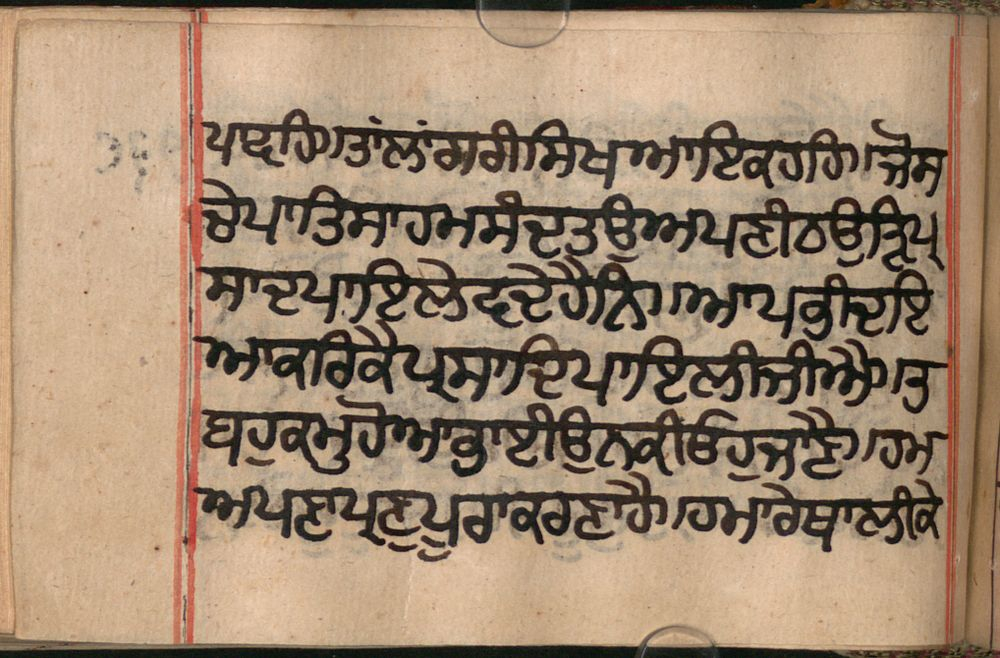 ਪਾਛਹਿ।ਤਾਂਲਾਂਗਰੀਸਿਖਆਇਕਹਹਿ।ਜੋਸ
ਚੇਪਾਤਿਸਾਹਮਸੰਦਤਉਅਪਣੀਠਉਤ੍ਰਿਪ੍ਰ
ਸਾਦਪਾਇਲੇਵਦੇਹੈਨਿ।ਆਪਭੀਦਇ
ਆਕਰਿਕੈਪ੍ਰਸਾਦਿਪਾਇਲੀਜੀਐ।ਤ
ਬਹੁਕਮੁਹੋਆਭਾਈਉਨਕੀਓਹੁਜਾਣੈ।ਹਮ
ਅਪਣਾਪ੍ਰਣੁਪੂਰਾਕਰਣਾਹੈ।ਹਮਾਰੇਥਾਲੀਕੇ